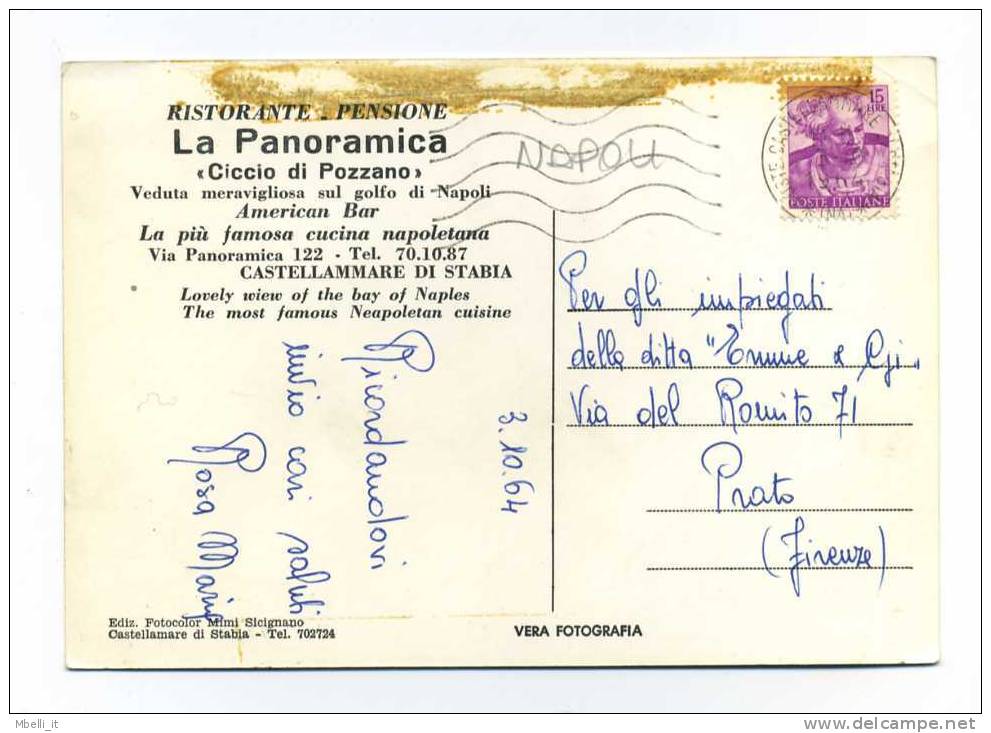 RISTORANTE - PENSIONE
La Panoramica
«Ciccio di Pozzano»
Veduta meravigliosa sul golfo di Napoli
American Bar
La più famosa cucina napoletana
Via Panoramica 122 - Tel. 70.10.87
CASTELLAMMARE DI STABIA
Lovely wiew of the bay of Naples
The most famous Neapoletan cuisine
NAPOLI
15
LIRE
POSTE ITALIANE
Ricordandovi
invio cari saluti
Rosa Maria
3.10.64
Per gli impiegati
della ditta "
Via del Romito 71
Prato
(Firenze)
Ediz. Fotocolor Mimi Sicignano
Castellamare di Stabia - Tel. 702724
VERA FOTOGRAFIA
Mbelli_it
www.delcampe.net